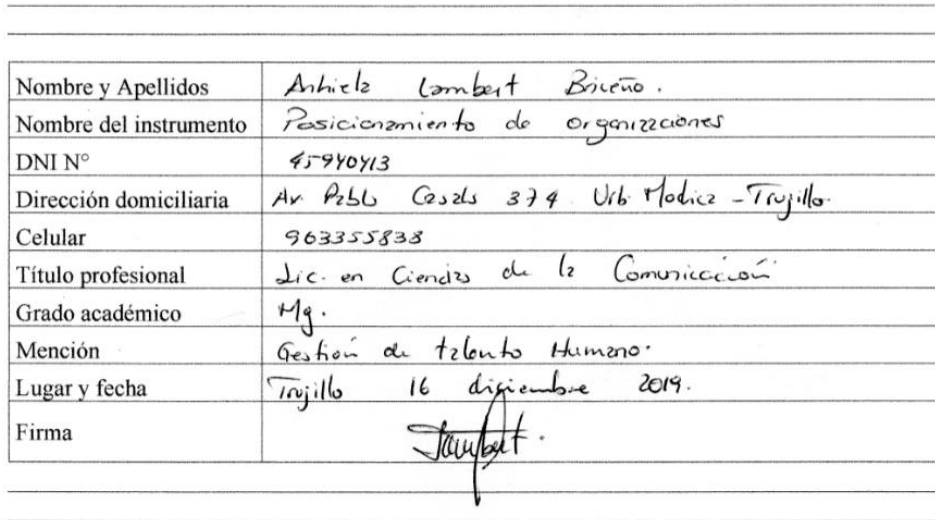 Nombre y Apellidos Anhiela Lambert Briceño.
Nombre del instrumento Posicionamiento de organizaciones
DNI N° 45940413
Dirección domiciliaria Av. Pablo Casals 374 Urb. Modica - Trujillo.
Celular 963355838
Título profesional Lic. en Ciencias de la Comunicación
Grado académico Mg.
Mención Gestión de talento Humano.
Lugar y fecha Trujillo 16 diciembre 2019.
Firma Lambert.